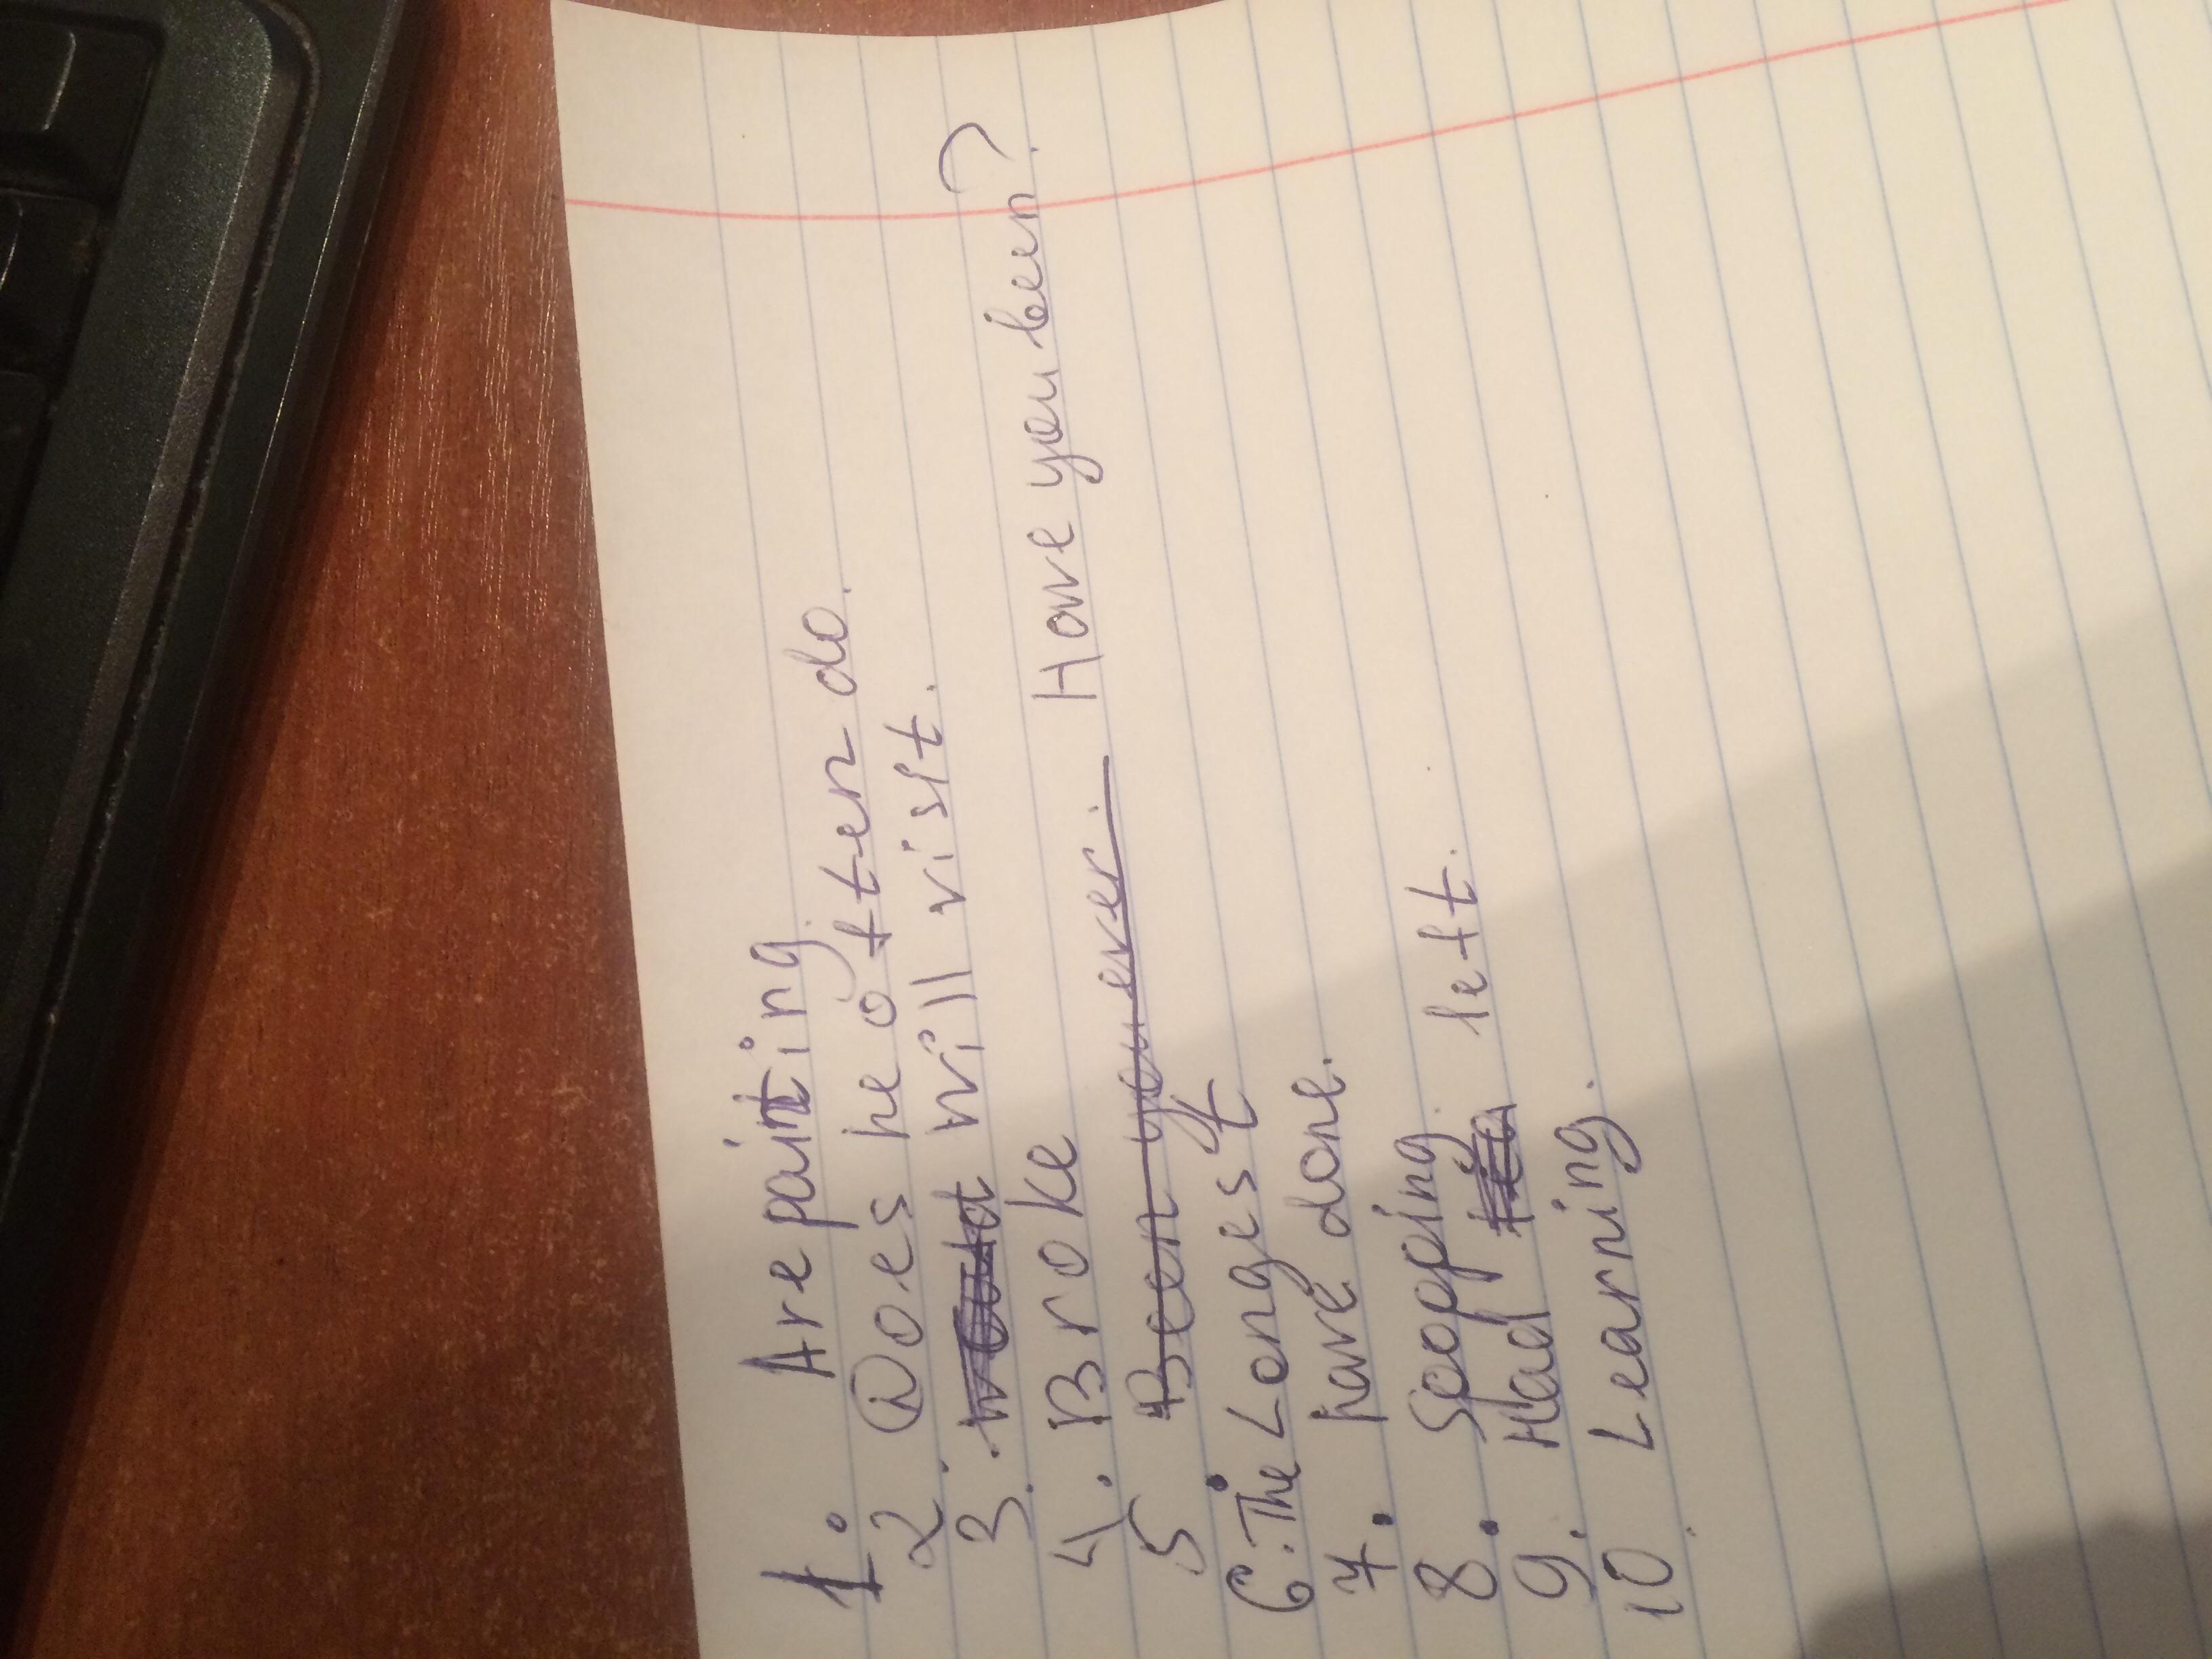 1. Are painting.
2. Does he often do.
3. will visit.
4. Broke
5 Been you ever. Have you been?
6. The Longest
7. have done.
8. Soopping.
9. Had left.
10 Learning.